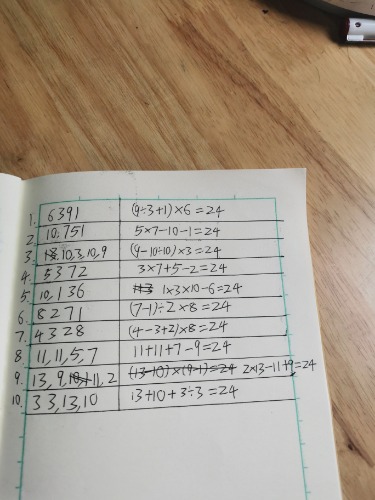 1. 6391 (9÷3+1)×6=24
2. 10.751 5×7-10-1=24
3. 10,3,10,9 (9-10÷10)×3=24
4. 5372 3×7+5-2=24
5. 10,136 1×3×10-6=24
6. 8271 (7-1)÷2×8=24
7. 4328 (4-3+2)×8=24
8. 11,11,5,7 11+11+7-9=24
9. 13,9,11,2 (13-10)×(9-1)=24 2×13-11+9=24
10. 33,13,10 13+10+3÷3=24